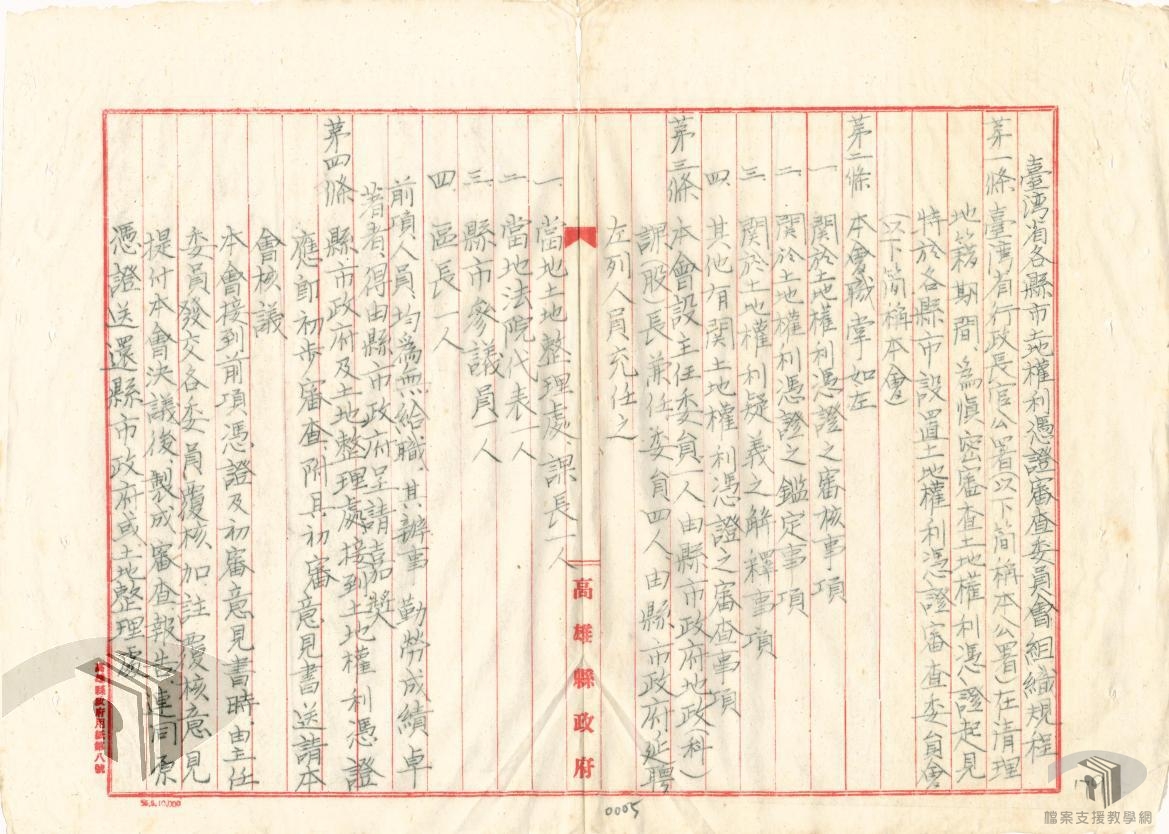 臺湾省各縣市土地權利憑證審查委員會組織規程
第一條 臺湾省行政長官公署(以下簡稱本公署)在清理
地籍期間、為慎密審查土地權利憑證起見
特於各縣市設置土地權利憑證審查委員會
(以下簡稱本會)
第二條 本會職掌如左
一 関於土地權利憑證之審核事項
二 関於土地權利憑證之鑑定事項
三 関於土地權利疑義之解釋事項
四、其他有関土地權利憑證之審查事項
第三條 本會設主任委員一人、由縣市政府地政(科)
課(股)長兼任委員四人由縣、市政府延聘
左列人員充任之
一、當地土地整理處課長一人
二、當地法院代表一人
三、縣市參議員一人
四、區長一人
前項人員、均為無給職、其辦事勤勞成績卓
著者、得由縣市政府呈請嘉獎
第四條 縣市政府及土地整理處接到土地權利憑證
應即初步審查、附具初審意見書送請本
會核議
本會接到前項憑證及初審意見書時、由主任
委員發交各委員覆核、加註覆核意見
提付本會決議後製成審查報告、連同原
憑證送還縣市政府或土地整理處
高雄縣政府
高雄縣政府用紙第八號
36.5.10,000
0005
檔案支援教學網